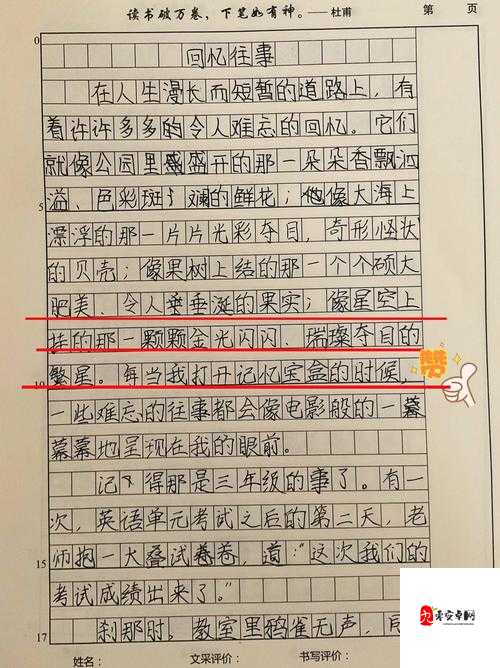 读书破万卷，下笔如有神。——杜甫 第 页
0
回忆往事
在人生漫长而短暂的道路上，有
着许许多多的令人难忘的回忆。它们
就像公园里盛盛开的那一朵朵香飘洒
5
溢、色彩斑斓的鲜花；像大海上
漂浮的那一片片光彩夺目，奇形怪状
的贝壳；像果树上结的那一个个硕大
肥美、令人垂垂涎的果实；像星空上
挂的那一颗颗金光闪闪、璀璨夺目的
赞
10
繁星。每当我打开记忆宝盒的时候，
一些难忘的往事都会像电影般的一幕
幕幕地呈现在我的眼前。
记得那是三年级的事了。有一
次，英语单元考试之后的第二天，老
15
师抱一大叠试卷卷，道：“这次我们的
考试成绩出来了。”
17
刹那时。教室里鸦雀无声，
姓名： 文采评价： 书写评价：
零安卓网